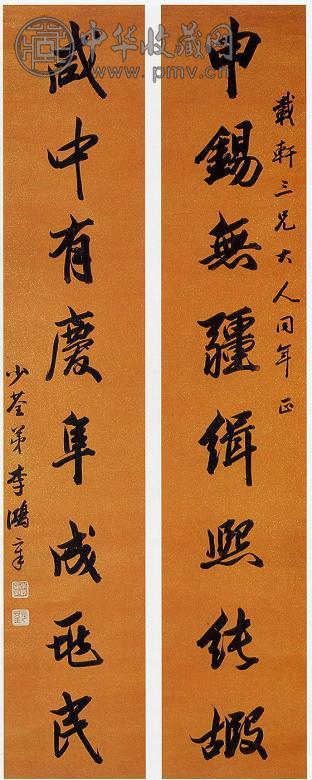 中华收藏网
www.pmv.cn
載軒三兄大人同年正
申錫無疆緝熙純嘏
咸中有慶阜成兆民
少荃弟李鴻章